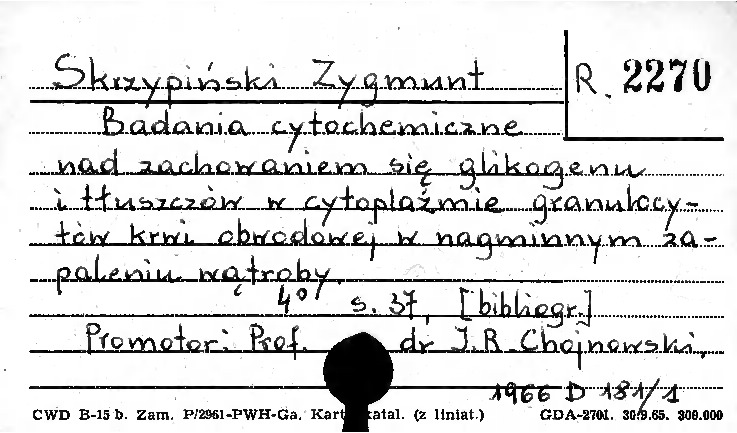 Skrzypiński Zygmunt
R. 2270
Badania cytochemiczne
nad zachowaniem się glikogenu
i tłuszczów w cytoplaźmie granulocy-
tów krwi obwodowej w nagminnym za-
paleniu wątroby.
4° s. 37, [bibliogr.]
Promotor: Prof. dr J.R. Chojnowski.
1966 D 181/1
CWD B-15 b. Zam. P/2961-PWH-Ga. Kart. katal. (z liniat.) GDA-2701. 30.9.65. 300.000